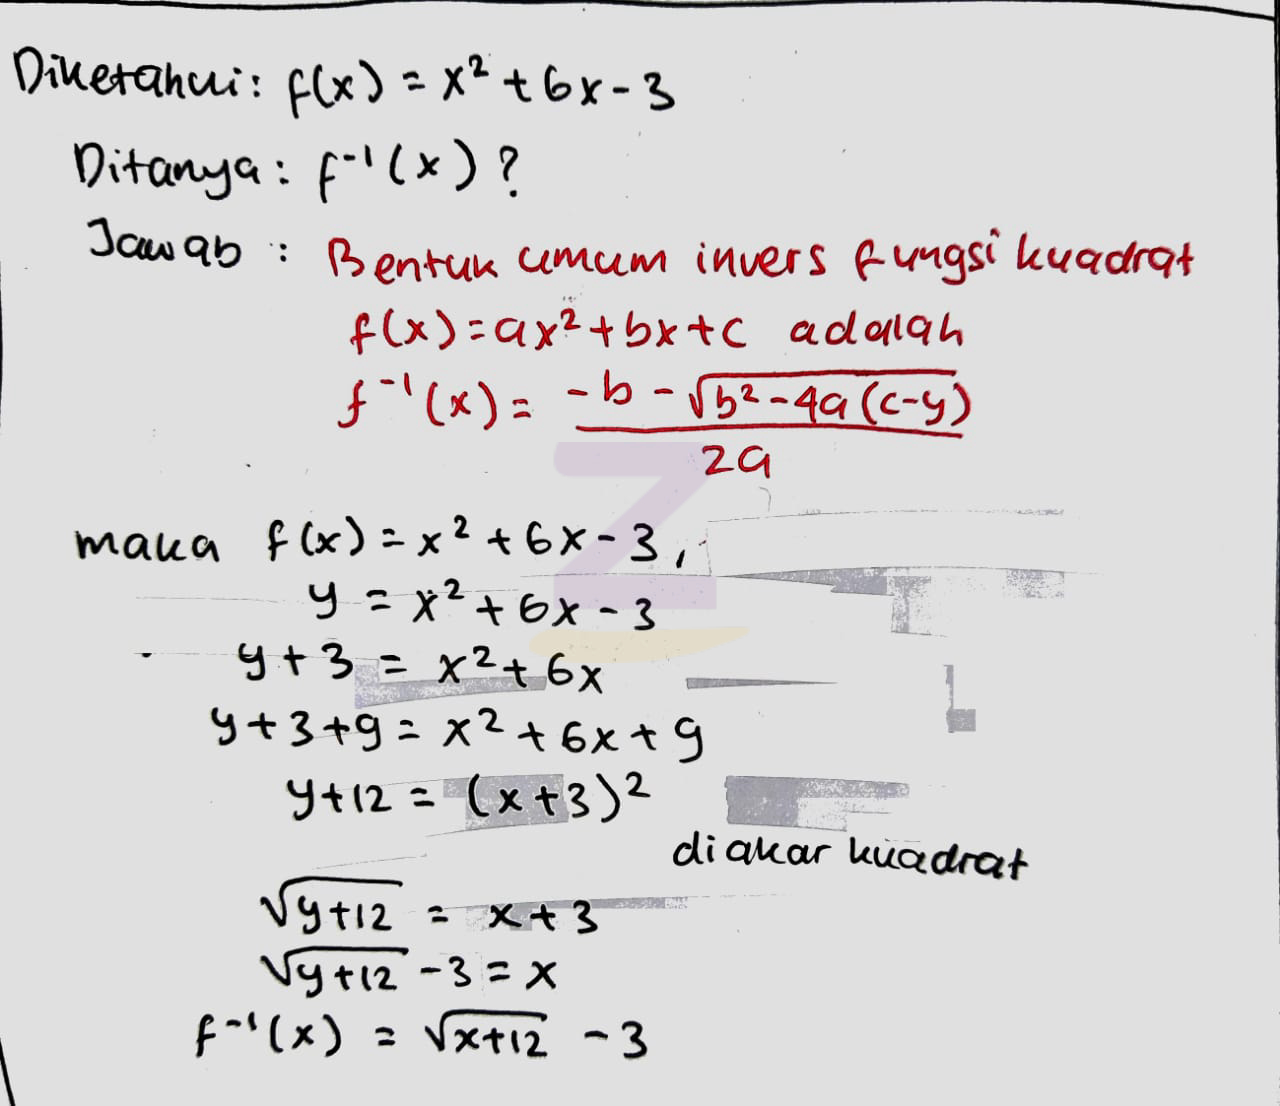 Diketahui: f(x) = x² + 6x - 3
Ditanya: f⁻¹(x) ?
Jawab : Bentuk umum invers fungsi kuadrat
f(x) = ax² + bx + c adalah
f⁻¹(x) = (-b - √(b² - 4a(c-y))) / 2a
maka f(x) = x² + 6x - 3,
y = x² + 6x - 3
y + 3 = x² + 6x
y + 3 + 9 = x² + 6x + 9
y + 12 = (x + 3)²
diakar kuadrat
√(y+12) = x + 3
√(y+12) - 3 = x
f⁻¹(x) = √(x+12) - 3